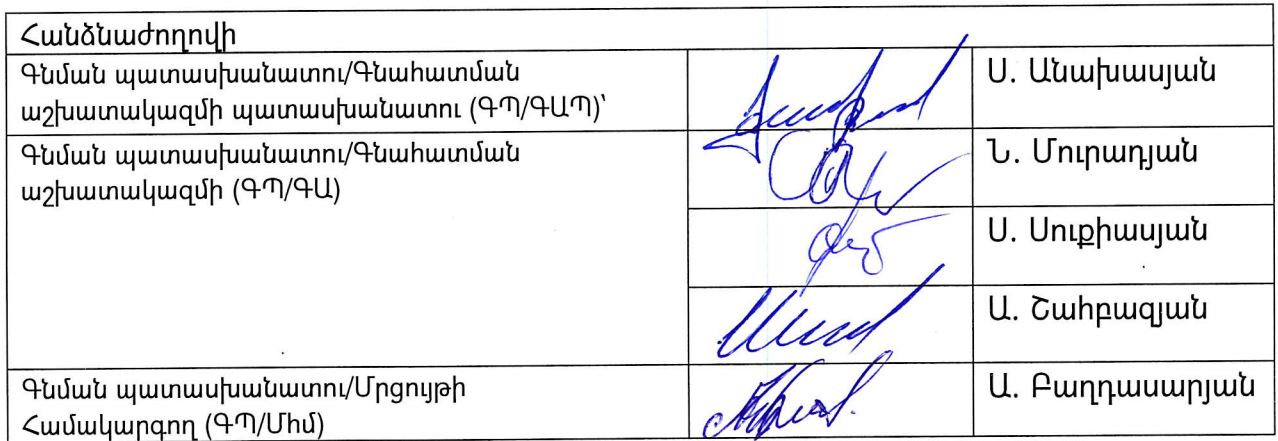 Հանձնաժողովի
Գնման պատասխանատու/Գնահատման
աշխատակազմի պատասխանատու (ԳՊ/ԳԱՊ)՝
Ս. Անախասյան
Գնման պատասխանատու/Գնահատման
աշխատակազմի (ԳՊ/ԳԱ)
Ն. Մուրադյան
Ս. Սուքիասյան
Ա. Շահբազյան
Գնման պատասխանատու/Մրցույթի
Համակարգող (ԳՊ/Մհմ)
Ա. Բաղդասարյան